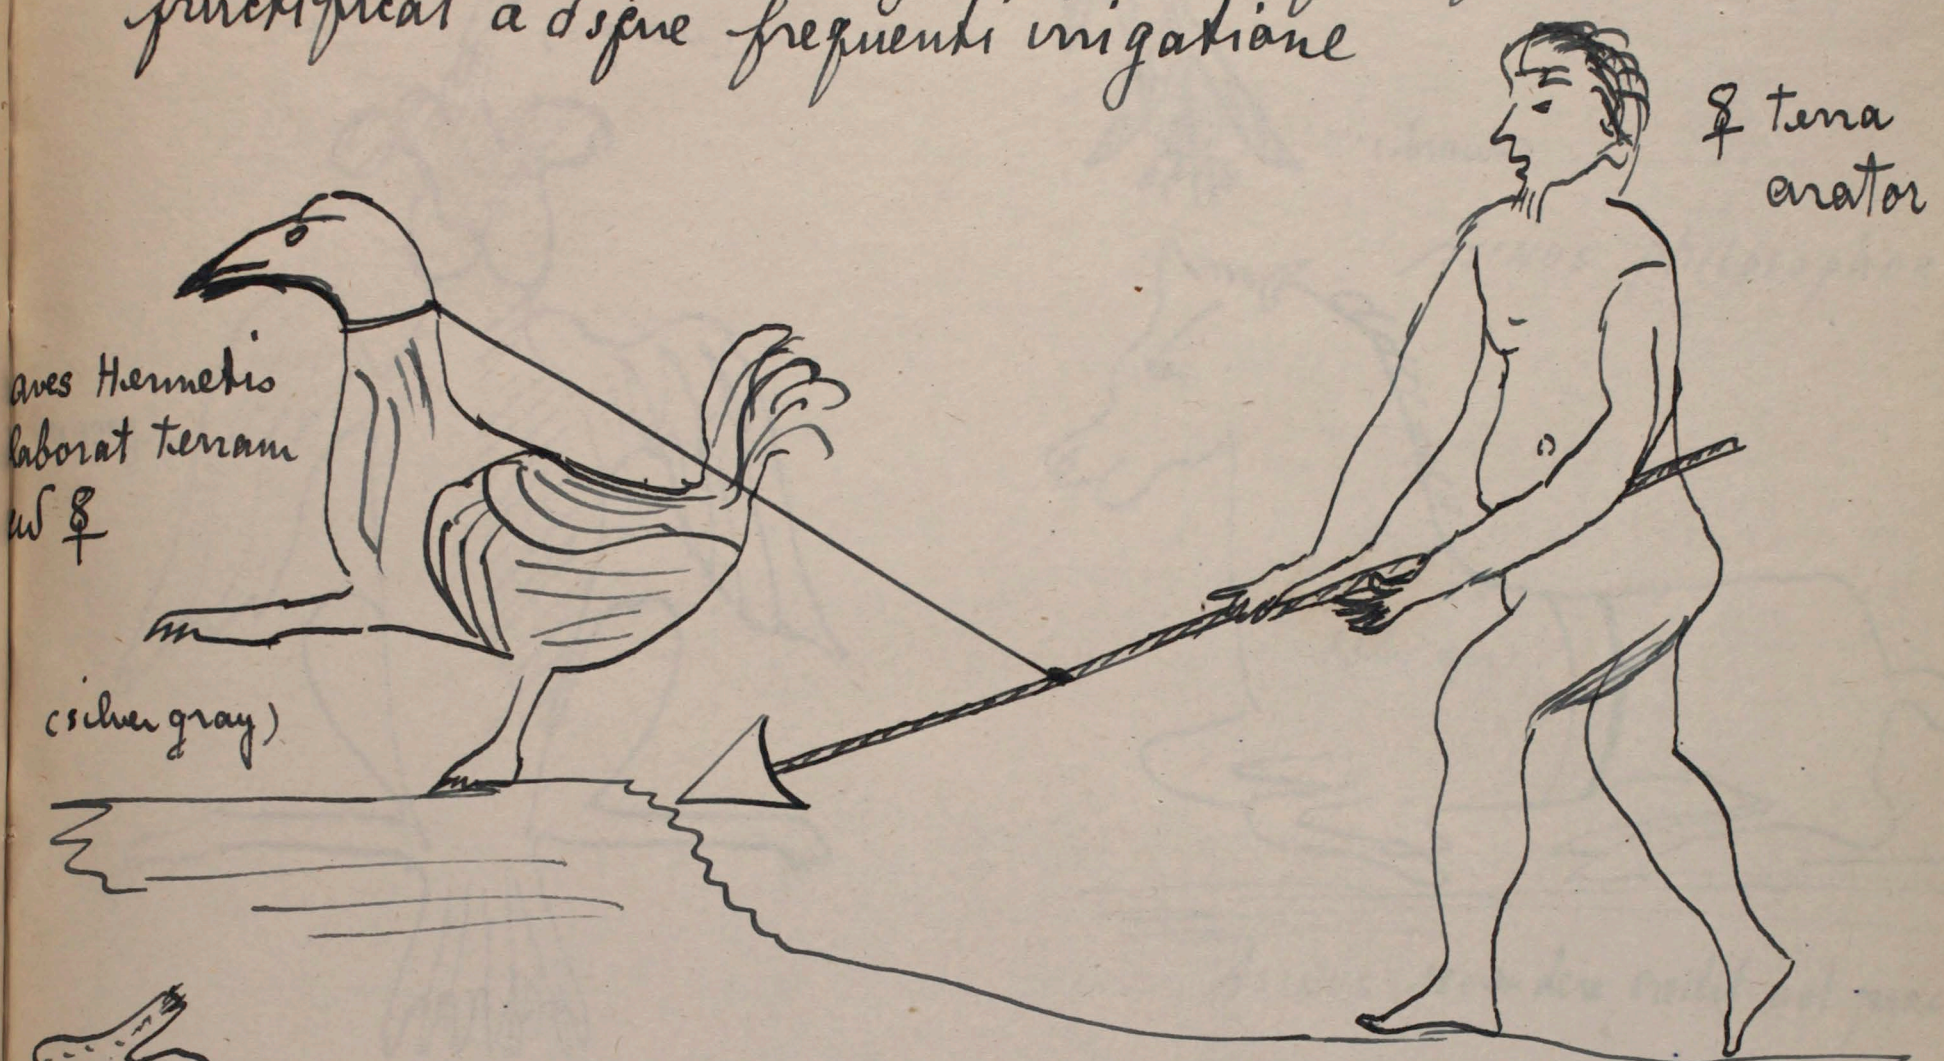 fructificat adsque frequenti irrigatione
☿ terra
arator
aves Hermetis
laborat terram
☿
(silver gray)